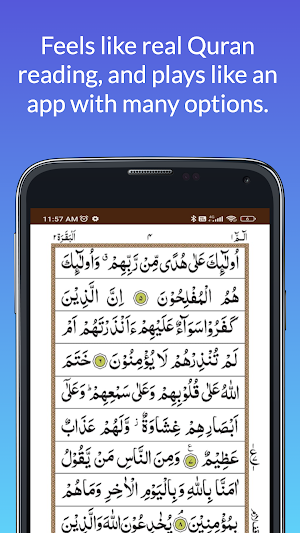 Feels like real Quran
reading, and plays like an
app with many options.
11:57 AM
الٓمّٓ ۱ ۴ اَلْبَقَرَة ۲
اُولٰٓئِكَ عَلٰى هُدًى مِّنْ رَّبِّهِمْ ۙ وَاُولٰٓئِكَ
هُمُ الْمُفْلِحُوْنَ ۵ اِنَّ الَّذِيْنَ
كَفَرُوْا سَوَآءٌ عَلَيْهِمْ ءَاَنْذَرْتَهُمْ اَمْ
لَمْ تُنْذِرْهُمْ لَا يُؤْمِنُوْنَ ۶ خَتَمَ
اللّٰهُ عَلٰى قُلُوْبِهِمْ وَعَلٰى سَمْعِهِمْ ؕ وَعَلٰٓى
اَبْصَارِهِمْ غِشَاوَةٌ ؗ وَّلَهُمْ عَذَابٌ
عَظِيْمٌ ۷ وَمِنَ النَّاسِ مَنْ يَّقُوْلُ
اٰمَنَّا بِاللّٰهِ وَبِالْيَوْمِ الْاٰخِرِ وَمَا هُمْ
بِمُؤْمِنِيْنَ ۸ يُخٰدِعُوْنَ اللّٰهَ وَالَّذِيْنَ